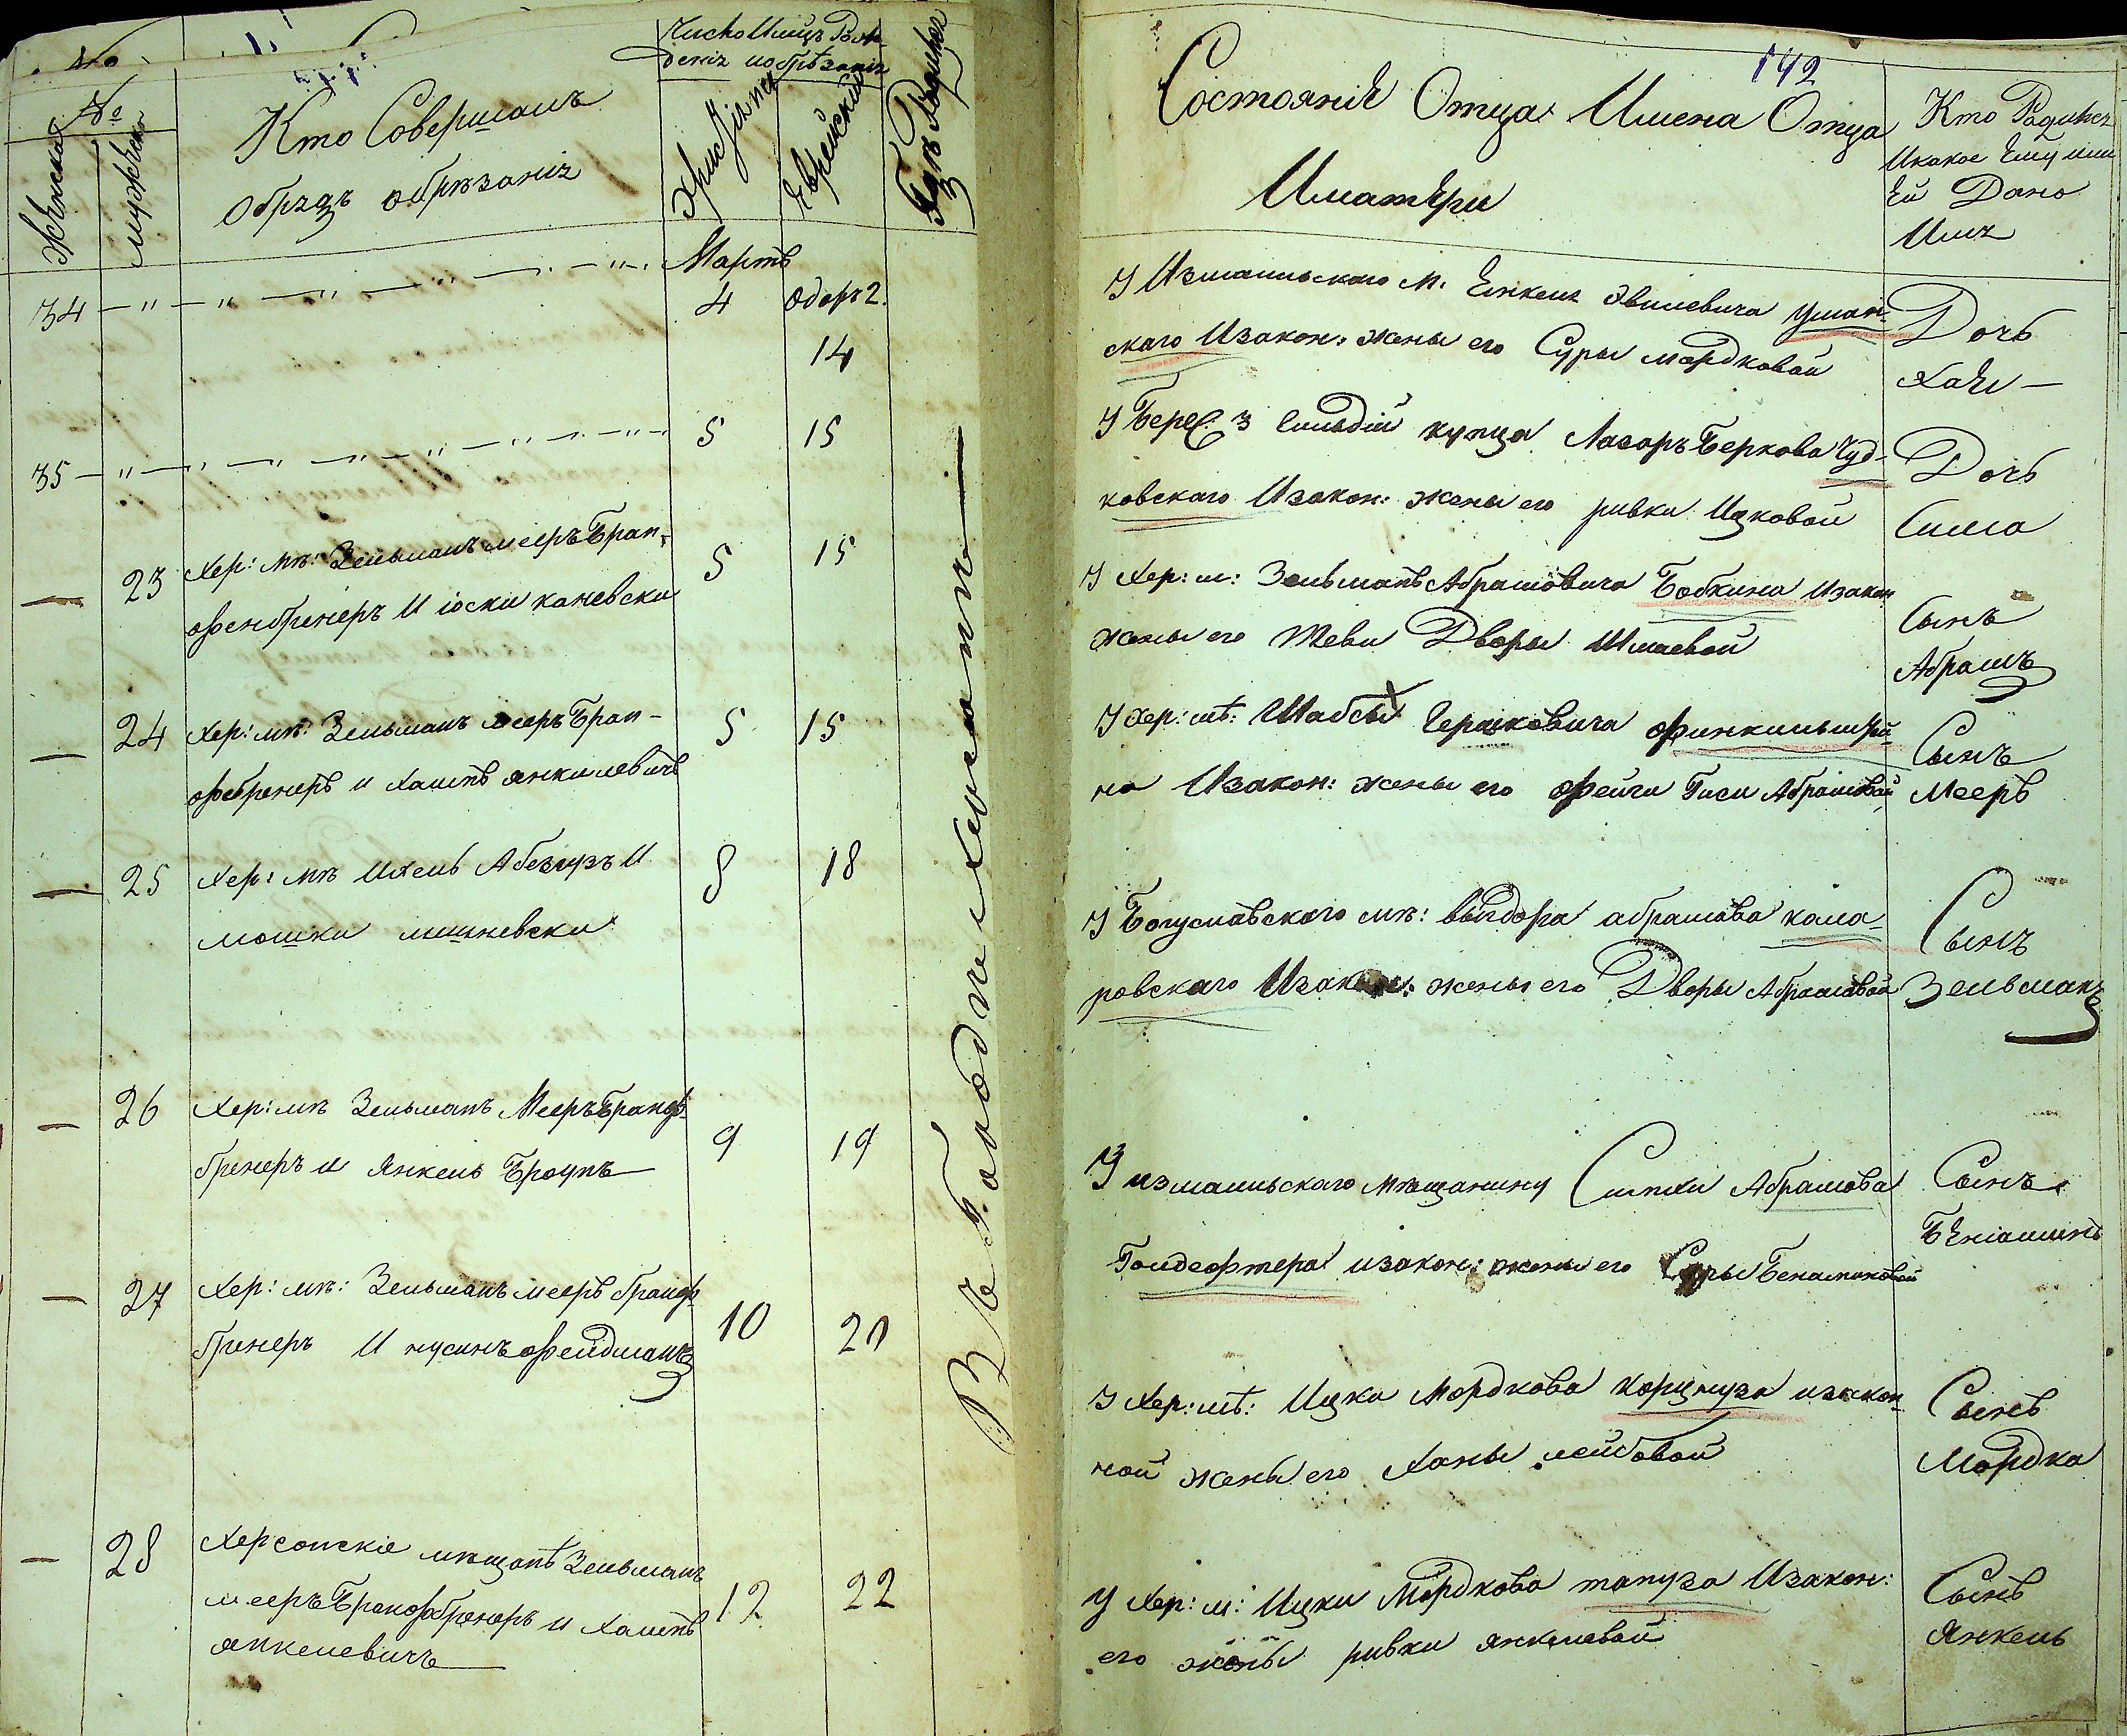 №
№
Женска
мужеска
Кто Совершалъ
обрядъ обрѣзанія
Число Мѣсяцъ Рож
денія и обрѣзанія
Христіянск
Еврейскій
Гдѣ Родился
Мартъ
34 — " — " — " — " — " — " 4 Одаръ 2.
14
35 — " — " — " — " — " — " 5 15
— 23 Хер: мѣ: Зельманъ мееръ Бран- 5 15
офенбренеръ И іоски каневски
— 24 Хер: мѣ: Зельманъ мееръ Бран- 5 15
офбренеръ и Хаимъ янкилевичъ
— 25 Хер: мѣ Ихель Абезгузъ И 8 18
мошки мешневски
— 26 Хер: мѣ Зельманъ Мееръ Браноф- 9 19
бренеръ и Янкель Броунъ
— 27 Хер: мѣ: Зельманъ мееръ браноф- 10 20
бренеръ И нусинъ офейдманъ
— 28 Херсонскіе мѣщанѣ Зельманъ 12 22
мееръ Бранофбренеръ и Хаимъ
янкелевичъ
Въ Городѣ Херсонѣ
142
Состояніе Отца Имена Отца
Иматери
Кто Родился
Икакое Ему или
Ей Дано
Имя
У Измаильского М. Янкеля Эвилевича Уман-
скаго Изакон: жены его Суры мордковой
Дочь
Хая —
У Берес 3 Гильдій купца Лазоръ Беркова Чуд-
ковскаго Изакон: жены его ривки Ицковой
Дочь
Сима
У Хер: м: Зельманъ Абрамовича Бобкина Изакон
жены его Шеви Дворы Шмаевой
Сынъ
Абрамъ
У Хер: мѣ: Шабсы Гершковича офинкильштей-
на Изакон: жены его офейги Гиси Абрамовой
Сынъ
Мееръ
У Богуславскаго мѣ: выгдора абрамова кама-
ровскаго Изакон: жены его Дворы Абрамовой
Сынъ
Зельманъ
У измаильскаго мѣщанину Симхи Абрамова
Голдеофтера изакон: жены его Суры Бенаминовой
Сынъ
Беніаминъ
У Хер: мѣ: Ицка Мордкова Корцнуза изакон-
ной жены его Ханы лейбовой
Сынъ
Мордка
У Хер: м: Ицки Мордкова тапуза Изакон:
его жены ривки янкелевой
Сынъ
Янкель